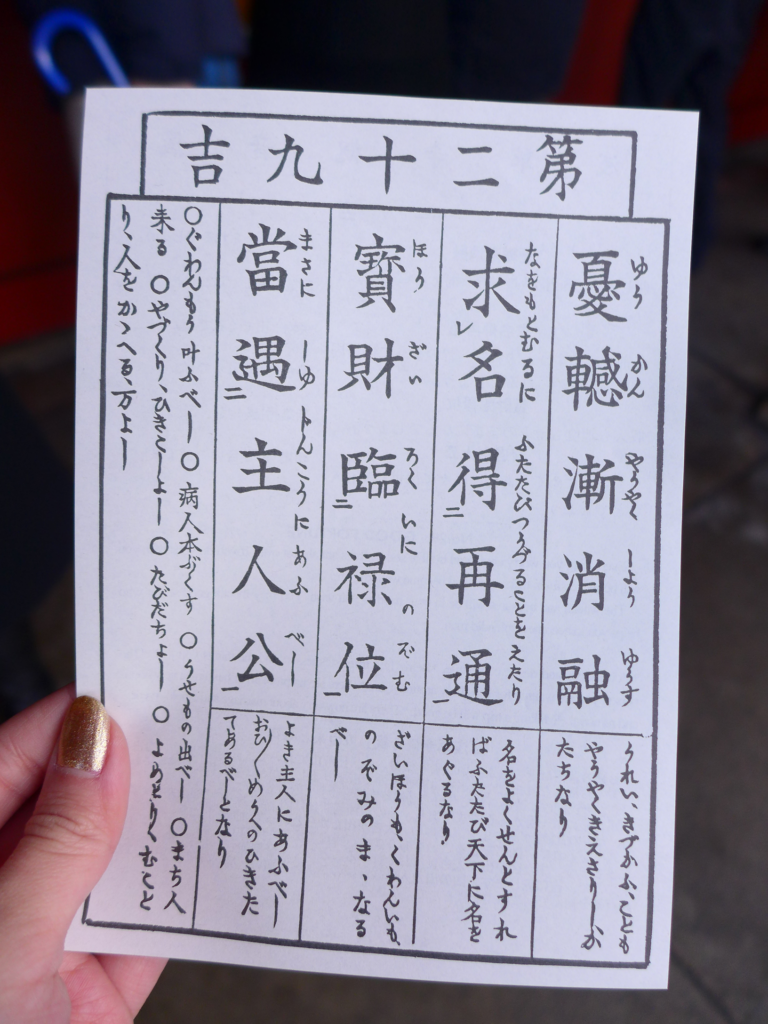 第二十九吉
ゆう かん やうやく しよう ゆうす
憂轗漸消融
うれい、きづかふ、ことも
やうやくきえさりしか
たちなり
なをもとむるに ふたたびつうづることをえたり
求レ名得二再通一
名をよくせんとすれ
ばふたたび天下に名を
あぐるなり
ほう ざい ろく いに のぞむ
寳財臨二禄位一
ざいほうも、くわんいも、
のぞみのまゝなる
べし
まさに しゆじんこうに あふ べし
當遇二主人公一
よき主人にあふべし
おひ〳〵めうへのひきた
てあるべしとなり
○ぐわんもう叶ふべし○病人本ぶくす○うせもの出べし○まち人
来る○やづくり、ひきこしよし○たびだちよし○よめとりむこと
り、人をかゝへる、万よし